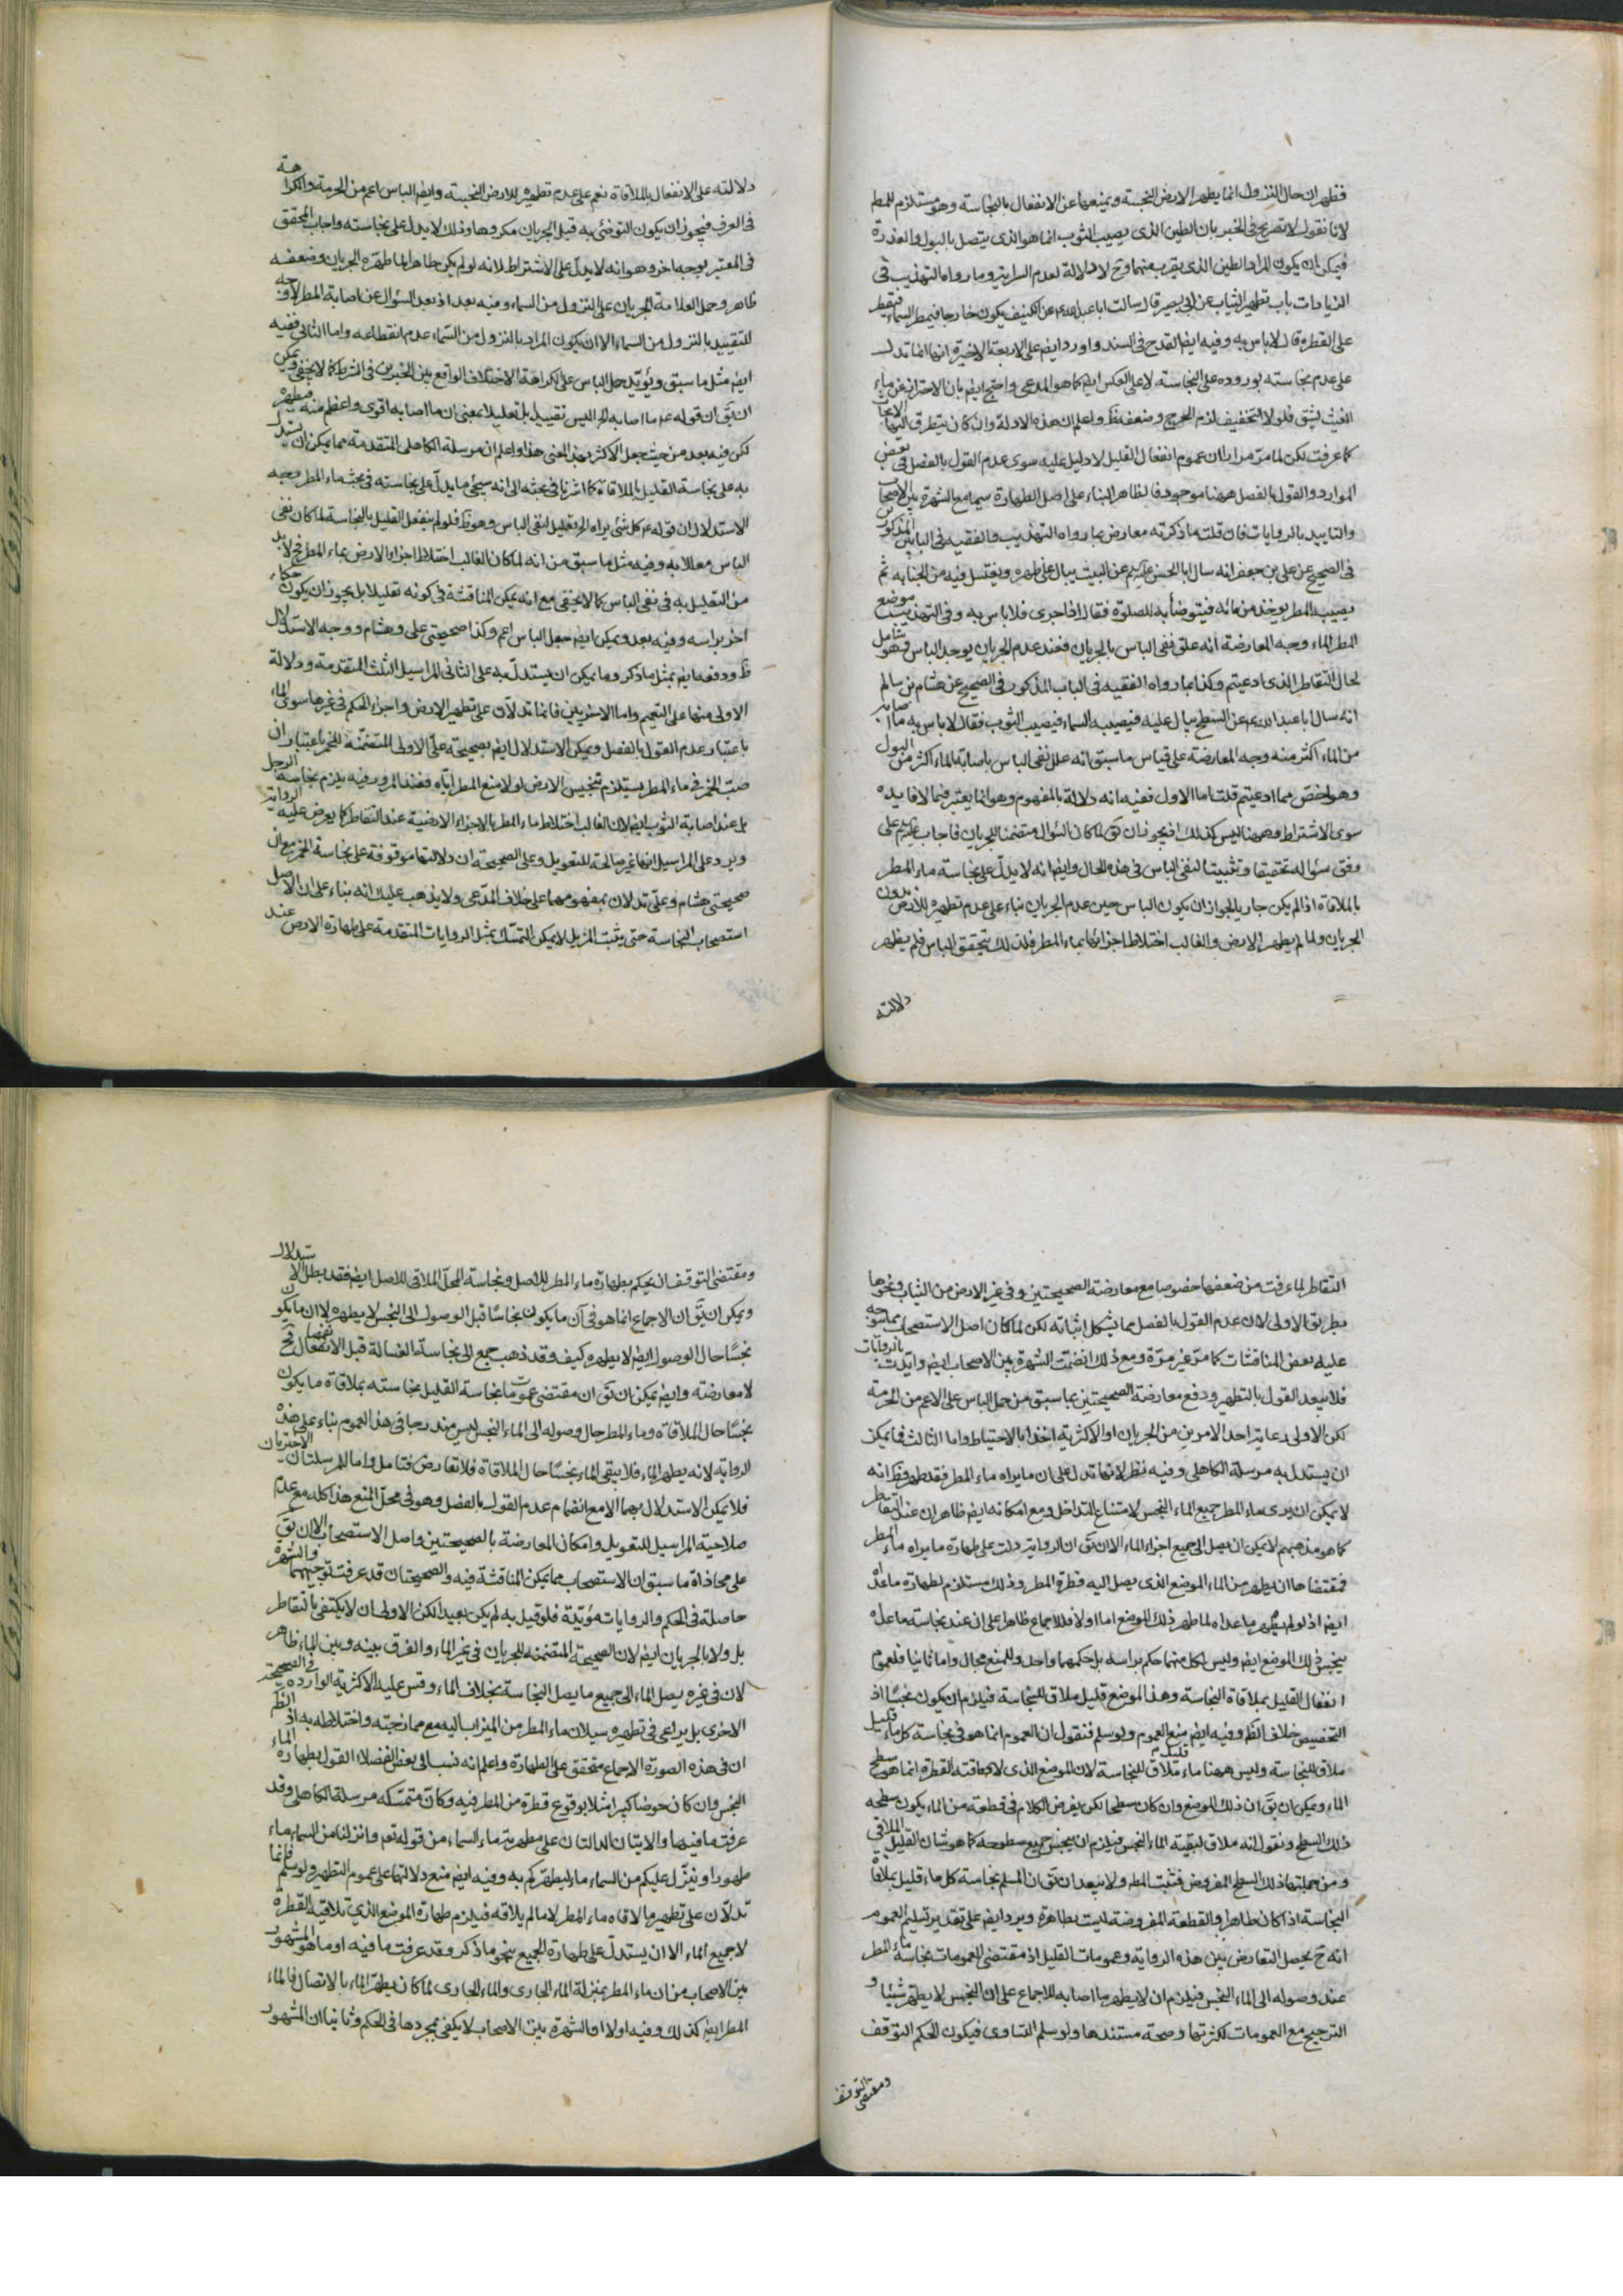 فظهر ان حال النزول انما يطهر الارض النجسة ويمنعها عن الانفعال بالنجاسة وهو مستلزم للمط
لانا نقول لا تصريح فى الخبر بان الطين الذى يصيب الثوب انما هو الذى يتصل بالبول والعذرة
فيمكن ان يكون المراد الطين الذى يقرب منهما وح لا دلالة لعدم السراية وما رواه التهذيب فى
الزيادات باب تطهير الثياب عن ابى بصير قال سالت ابا عبد الله ع عن الكنيف يكون خارجا فيمطر السماء فيقطر
على القطرة قال لا باس به وفيه ايضا القدح فى السند واورد ايض على الاربعة الاخيرة انها انما تدل
على عدم نجاسته بوروده على النجاسة لا على العكس ايض كما هو المدعى واحتج ايض بان الاحتراز عن ماء
الغيث يشق فلولا التخفيف لزم الحرج وضعفه ظ واعلم ان هذه الادلة وان كان يتطرق اليها الابحاث
كما عرفت لكن لما مر مرارا ان عموم انفعال القليل لا دليل عليه سوى عدم القول بالفصل فى بعض
الموارد والقول بالفصل ههنا موجود فالظاهر البناء على اصل الطهارة سيما مع الشهرة بين الاصحاب
والتاييد بالروايات فان قلت ما ذكرته معارض بما رواه التهذيب والفقيه فى الباب المذكور
فى الصحيح عن على بن جعفر انه سال ابا الحسن عليه السلم عن البيت يبال على ظهره ويغتسل فيه من الجنابه ثم
يصيبه المطر يؤخذ من مائه فيتوضأ به للصلوة فقال اذا جرى فلا باس به وفى التهذيب موضع
المطر الماء وجه المعارضة انه علق نفى الباس بالجريان فعند عدم الجريان يوجد الباس فهو شامل
لحال التقاطر الذى ادعيتم وكذا بما رواه الفقيه فى الباب المذكور فى الصحيح عن هشام بن سالم
انه سال ابا عبد الله ع عن السطح يبال عليه فيصيبه السماء فيصيب الثوب فقال لا باس به ما اصابه
من الماء اكثر منه وجه المعارضة على قياس ما سبق انه علل نفى الباس باصابة الماء اكثر من البول
وهو اخص مما ادعيتم قلت اما الاول ففيه انه دلالة بالمفهوم وهو انما يعتبر فيما لا فايده
سوى الاشتراط وههنا ليس كذلك اذ يجوز ان يق لما كان السؤال متضمنا للجريان فاجاب عليه السلم على
وفق سؤاله تحقيقا وتثبيتا لنفى الباس فى هذه الحال وايض انه لا يدل على نجاسة ماء المطر
بالملاقاة اذا لم يكن جاريا لجواز ان يكون الباس حين عدم الجريان بناء على عدم تطهيره للارض بدون
الجريان ولما لم يطهر الارض والغالب اختلاط اجزائها بماء المطر فلذلك يتحقق الباس فلم يظهر
دلالته
دلالته على الانفعال بالملاقاة نعم على عدم تطهيره للارض النجسة وايض الباس اعم من الحرمة والكراهة
فى العرف فيجوز ان يكون التوضئ به قبل الجريان مكروها وذلك لا يدل على نجاسته واجاب المحقق
فى المعتبر بوجه اخر وهو انه لا يدل على الاشتراط لانه لو لم يكن طاهرا لما طهره الجريان وضعفه
ظاهر وحمل العلامة الجريان على النزول من السماء وفيه بعد اذ بعد السؤال عن اصابة المطر لا وجه
للتقييد بالنزول من السماء الا ان يكون المراد بالنزول من السماء عدم انقطاعه واما الثانى ففيه
ايض مثل ما سبق ويؤيد حمل الباس على الكراهة الاختلاف الواقع بين الخبرين فى الشرط كما لا يخفى ويمكن
ان يق ان قوله ع ما اصابه الخ ليس تقييدا بل تعليلا بمعنى ان ما اصابه اقوى واعظم منه فيطهره
لكن فيه بعد من حيث جعل الاكثر بهذا المعنى هذا واعلم ان مرسلة الكاهلى المتقدمة مما يمكن ان يستدل
به على نجاسة القليل بالملاقاة كما اشرنا فى بحثه الى انه سيجئ ما يدل على نجاسته فى بحث ماء المطر وجه
الاستدلال ان قوله ع كل شئ يراه الخ تعليل لنفى الباس وهو ظ فلو لم ينفعل القليل بالنجاسة لما كان نفى
الباس معللا به وفيه مثل ما سبق من انه لما كان الغالب اختلاط اجزاء الارض بماء المطر فح لا بد
من التعليل به فى نفى الباس كما لا يخفى مع انه يمكن المناقشة فى كونه تعليلا بل يجوز ان يكون حكما
اخر براسه وفيه بعد ويمكن ايض جعل الباس اعم وكذا صحيحتى على وهشام ووجه الاستدلال
ظ ودفعه ايض بمثل ما ذكر ومما يمكن ان يستدل به على الثانى المراسيل الثلث المتقدمة ودلالة
الاولى منها على التعميم واما الاخريين فانما تدلان على تطهير الارض واجراء الحكم فى غيرها سوى الماء
باعتبار عدم القول بالفصل ويمكن الاستدلال ايض بصحيحة على الاولى المتضمنة للخمر باعتبار ان
صب الخمر فى ماء المطر يستلزم تنجيس الارض لولا منع المطر اياه فعند المرور فيه يلزم نجاسة الرجل
بل عند اصابة الثوب ايض لان الغالب اختلاط ماء المطر بالاجزاء الارضية عند التقاطر كما يعرض عليه الرواية
ويرد على المراسيل انها غير صالحة للتعويل وعلى الصحيحة ان دلالتها موقوفة على نجاسة الخمر مع ان
صحيحتى هشام وعلى تدلان بمفهومهما على خلاف المدعى ولا يذهب عليك انه بناء على ان الاصل
استصحاب النجاسة حتى يثبت المزيل لا يمكن التمسك بمثل الروايات المتقدمة على طهارة الارض عند
التقاطر لما عرفت من ضعفها خصوصا مع معارضة الصحيحتين وفى غير الارض من الثياب ونحوها
بطريق الاولى لان عدم القول بالفصل مما يشكل اثباته لكن لما كان اصل الاستصحاب مما يتوجه
عليه بعض المناقشات كما مر غير مرة ومع ذلك انضمت الشهرة بين الاصحاب ايض وايدت بالروايات
فلا يبعد القول بالتطهير ودفع معارضة الصحيحتين بما سبق من حمل الباس على الاعم من الحرمة
لكن الاولى رعاية احد الامرين من الجريان او الاكثرية اخذا بالاحتياط واما الثالث فما يمكن
ان يستدل به مرسلة الكاهلى وفيه نظر لانها تدل على ان ما يراه ماء المطر فقد طهر وظ انه
لا يمكن ان يرى ماء المطر جميع الماء النجس لامتناع التداخل ومع امكانه ايض ظاهر ان عند التقاطر
كما هو مذهبهم لا يمكن ان يصل الى جميع اجزاء الماء الا ان يق ان الرواية دلت على طهارة ما يراه ماء المطر
فمقتضاها ان يطهر من الماء الموضع الذى يصل اليه قطرة المطر وذلك مستلزم لطهارة ما عداه
ايض اذ لو لم يطهر ما عداه لما طهر ذلك الموضع اما اولا فللاجماع ظاهرا على ان عند نجاسة ما عداه
ينجس ذلك الموضع ايض وليس لكل منهما حكم براسه بل حكمهما واحد وللمنع مجال واما ثانيا فلعموم
انفعال القليل بملاقاة النجاسة وهذا الموضع قليل ملاق للنجاسة فيلزم ان يكون نجسا اذ
التخصيص خلاف الظ وفيه ايض منع العموم ولو سلم فنقول ان العموم انما هو فى نجاسة كل ماء قليل
ملاق للنجاسة وليس ههنا ماء قليل ملاق للنجاسة لان الموضع الذى لاقته القطرة انما هو سطح
الماء ويمكن ان يق ان ذلك الموضع وان كان سطحا لكن يفرض الكلام فى قطعة من الماء يكون سطحه
ذلك السطح ونقول انه ملاق لبقية الماء النجس فيلزم ان ينجس جميع سطوحه كما هو شان القليل الملاقى
ومن جملتها ذلك السطح المفروض فثبت المط ولا يبعد ان يق ان المسلم نجاسة كل ماء قليل بملاقاة
النجاسة اذا كان طاهرا والقطعة المفروضة ليست بطاهرة ويرد ايض على تقدير تسليم العموم
انه ح يحصل التعارض بين هذه الرواية وعمومات القليل اذ مقتضى العمومات نجاسة ماء المطر
عند وصوله الى الماء النجس فيلزم ان لا يطهر ما اصابه للاجماع على ان النجس لا يطهر شيئا و
الترجيح مع العمومات لكثرتها وصحة مستندها ولو سلم التساوى فيكون الحكم التوقف
ومقتضى التوقف
ومقتضى التوقف ان يحكم بطهارة ماء المطر للاصل ونجاسة المحل الملاقى للاصل ايض فقد بطل الاستدلال
ويمكن ان يق ان الاجماع انما هو فى آن ما يكون نجاسا قبل الوصول الى النجس لا يطهره لا ان ما يكون
نجسا حال الوصول ايض لا يطهره كيف وقد ذهب جمع الى نجاسة الغسالة قبل الانفصال فح
لا معارضة وايض يمكن ان يق ان مقتضى عمومات نجاسة القليل نجاسته بملاقاة ما يكون
نجسا حال الملاقاة وماء المطر حال وصوله الى الماء النجس ليس مندرجا فى هذا العموم بناء على هذه
الرواية لانه يطهر الماء فلا يبقى الماء نجسا حال الملاقاة فلا تعارض فتامل واما المرسلتان الاخريان
فلا يمكن الاستدلال بهما الا مع انضمام عدم القول بالفصل وهو فى محل المنع هذا كله مع عدم
صلاحية المراسيل للتعويل وامكان المعارضة بالصحيحتين واصل الاستصحاب الا ان يق
على محاذاة ما سبق ان الاستصحاب مما يمكن المناقشة فيه والصحيحتان قد عرفت توجيههما والشهرة
حاصلة فى الحكم والروايات مؤيدة فلو قيل به لم يكن بعيدا لكن الاولى ان لا يكتفى بالتقاطر
بل ولا بالجريان ايض لان الصحيحة المتضمنة للجريان فى غير الماء والفرق بينه وبين الماء ظاهر
لان فى غيره يصل الماء الى جميع ما يصل النجاسة بخلاف الماء وقس عليه الاكثرية الوارده فى الصحيحة
الاخرى بل يراعى فى تطهيره سيلان ماء المطر من الميزاب اليه مع ممازجته واختلاطه به اذ الظ
ان فى هذه الصورة الاجماع متحقق على الطهارة واعلم انه نسب الى بعض الفضلاء القول بطهارة الماء
النجس وان كان حوضا كبيرا مثلا بوقوع قطرة من المطر فيه وكان متمسكه مرسلة الكاهلى وقد
عرفت ما فيها والايتان الدالتان على مطهرية ماء السماء من قوله تعم وانزلنا من السماء ماء
طهورا وينزل عليكم من السماء ماء ليطهركم به وفيه ايض منع دلالتهما على عموم التطهير ولو سلم فانما
تدلان على تطهير ما لاقاه ماء المطر لا ما لم يلاقه فيلزم طهارة الموضع الذى تلاقيه القطرة
لا جميع الماء الا ان يستدل على طهارة الجميع بنحو ما ذكر وقد عرفت ما فيه او ما هو المشهور
بين الاصحاب من ان ماء المطر بمنزلة الماء الجارى والماء الجارى لما كان يطهر الماء بالاتصال فالماء
المطر ايض كذلك وفيه اولا ان الشهرة بين الاصحاب لا يكفى بمجردها فى الحكم وثانيا ان المشهور